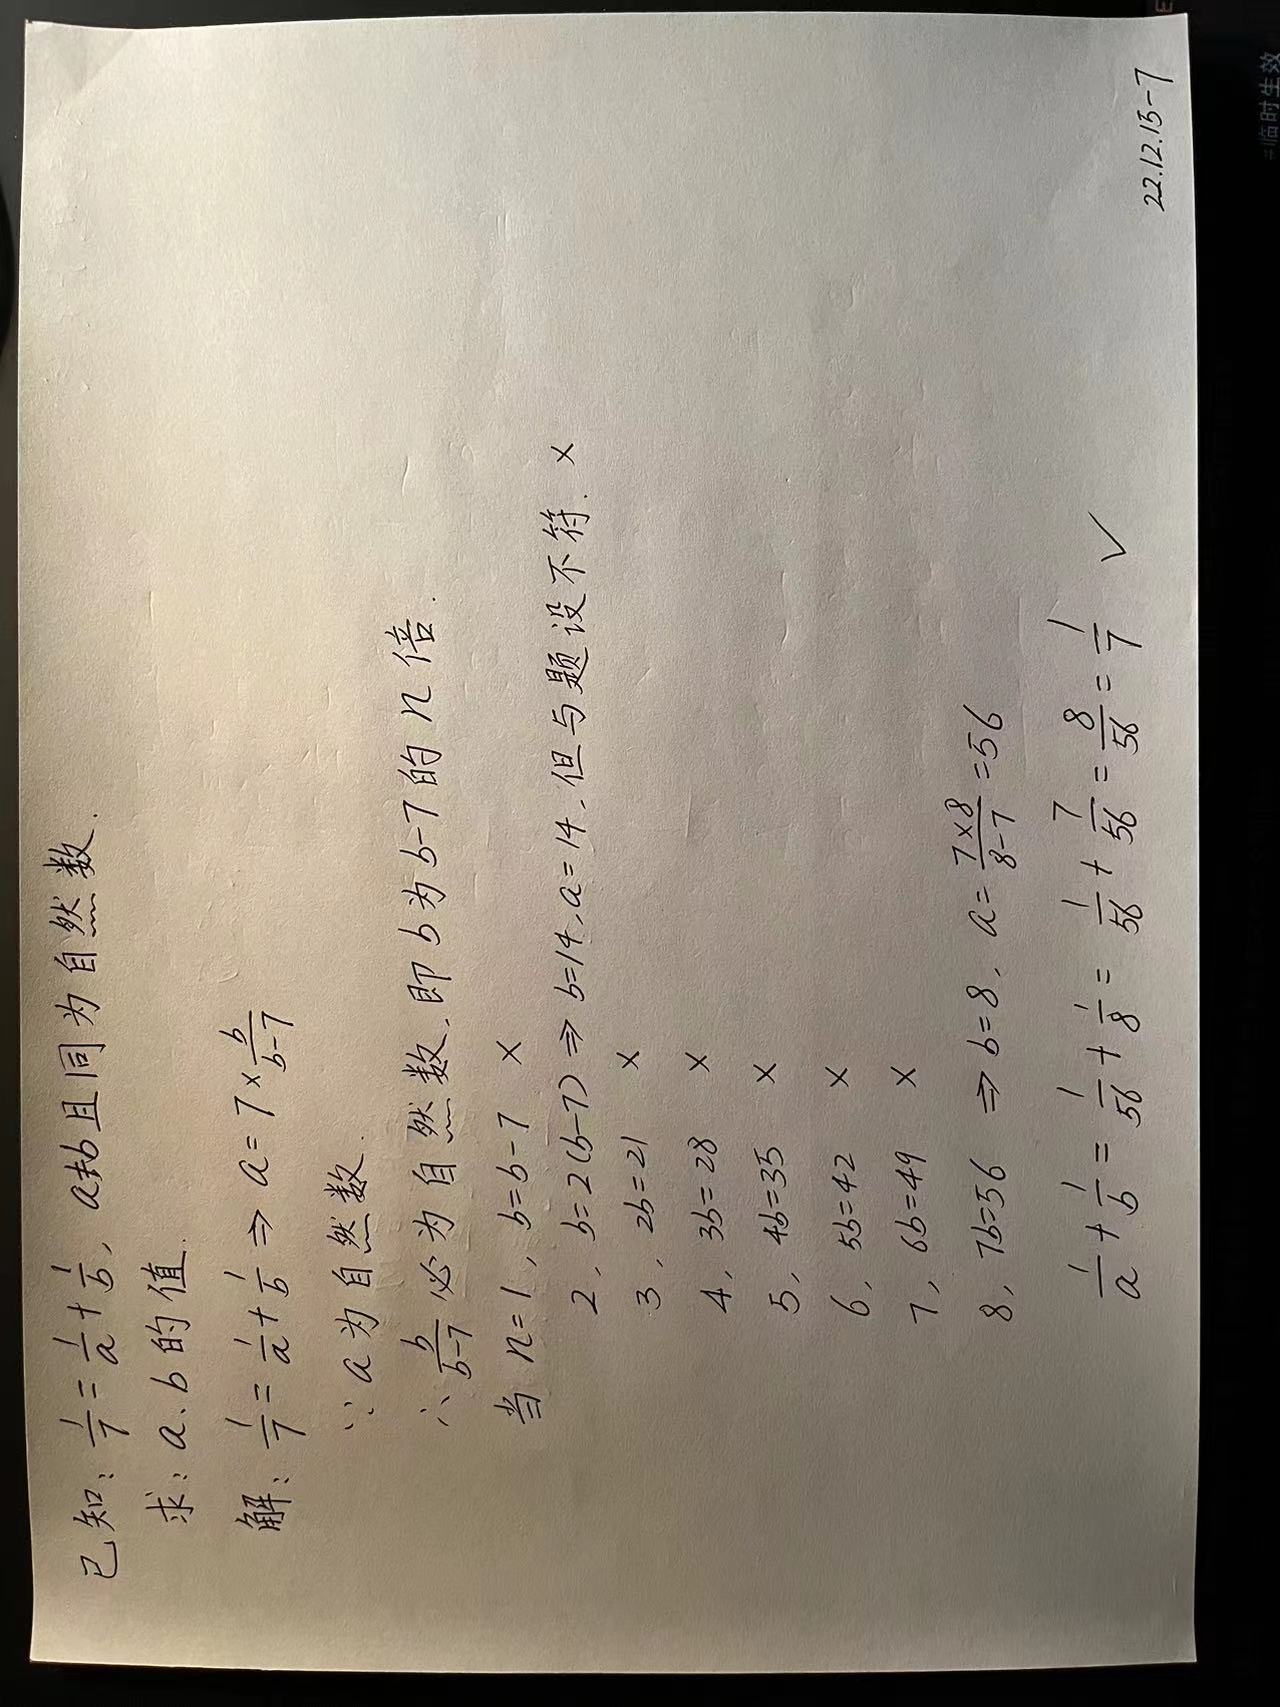 已知: 1/7 = 1/a + 1/b, a≠b且同为自然数.
求: a、b的值.
解: 1/7 = 1/a + 1/b ⇒ a = 7 × b/(b-7)
∵ a为自然数.
∴ b/(b-7) 必为自然数,即b为b-7的n倍.
当 n=1, b=b-7 ×
2, b=2(b-7) ⇒ b=14, a=14, 但与题设不符. ×
3, 2b=21 ×
4, 3b=28 ×
5, 4b=35 ×
6, 5b=42 ×
7, 6b=49 ×
8, 7b=56 ⇒ b=8, a = (7×8)/(8-7) = 56
1/a + 1/b = 1/56 + 1/8 = 1/56 + 7/56 = 8/56 = 1/7 ✓
22.12.15-7
#临时生效